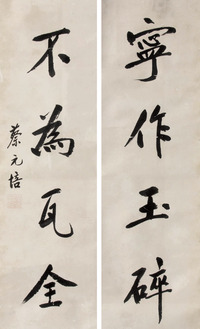 寧作玉碎
不為瓦全
蔡元培